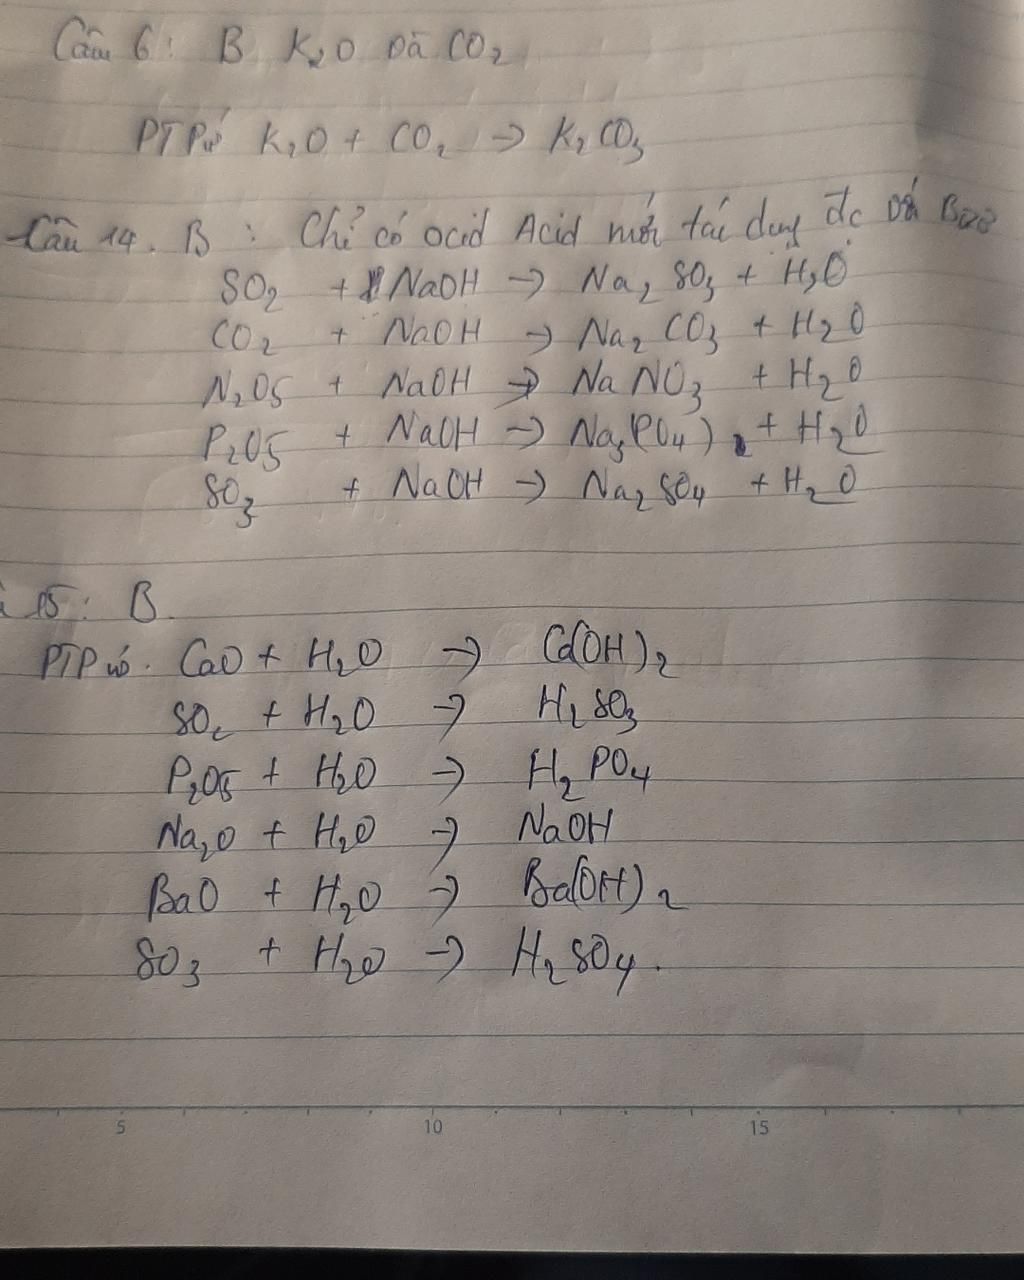 Câu 6: B K₂O và CO₂
PTPứ K₂O + CO₂ → K₂CO₃
Câu 14. B : Chỉ có ocid Acid mới tác dụng đc với
SO₂ + NaOH → Na₂SO₃ + H₂O
CO₂ + NaOH → Na₂CO₃ + H₂O
N₂O5 + NaOH → NaNO₃ + H₂O
P₂O5 + NaOH → Na₃(PO₄) + H₂O
SO₃ + NaOH → Na₂SO₄ + H₂O
15: B.
PTPứ. CaO + H₂O → Ca(OH)₂
SO₂ + H₂O → H₂SO₃
P₂O5 + H₂O → H₂PO₄
Na₂O + H₂O → NaOH
BaO + H₂O → Ba(OH)₂
SO₃ + H₂O → H₂SO₄.
5 10 15